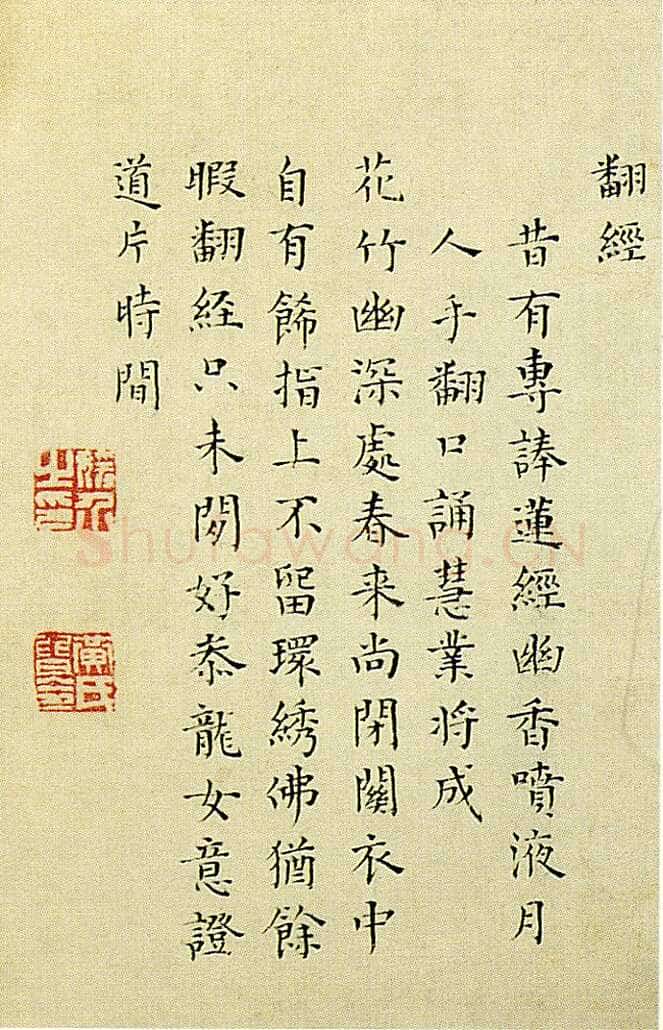 翻經
昔有專蓮經幽香噴液月
人手翻口誦慧業將成
花竹幽深處春来尚閉關衣中
自有餙指上不畱環綉佛猶餘
暇翻経只未閒好叅龍女意證
道片時間
shufawang.CN